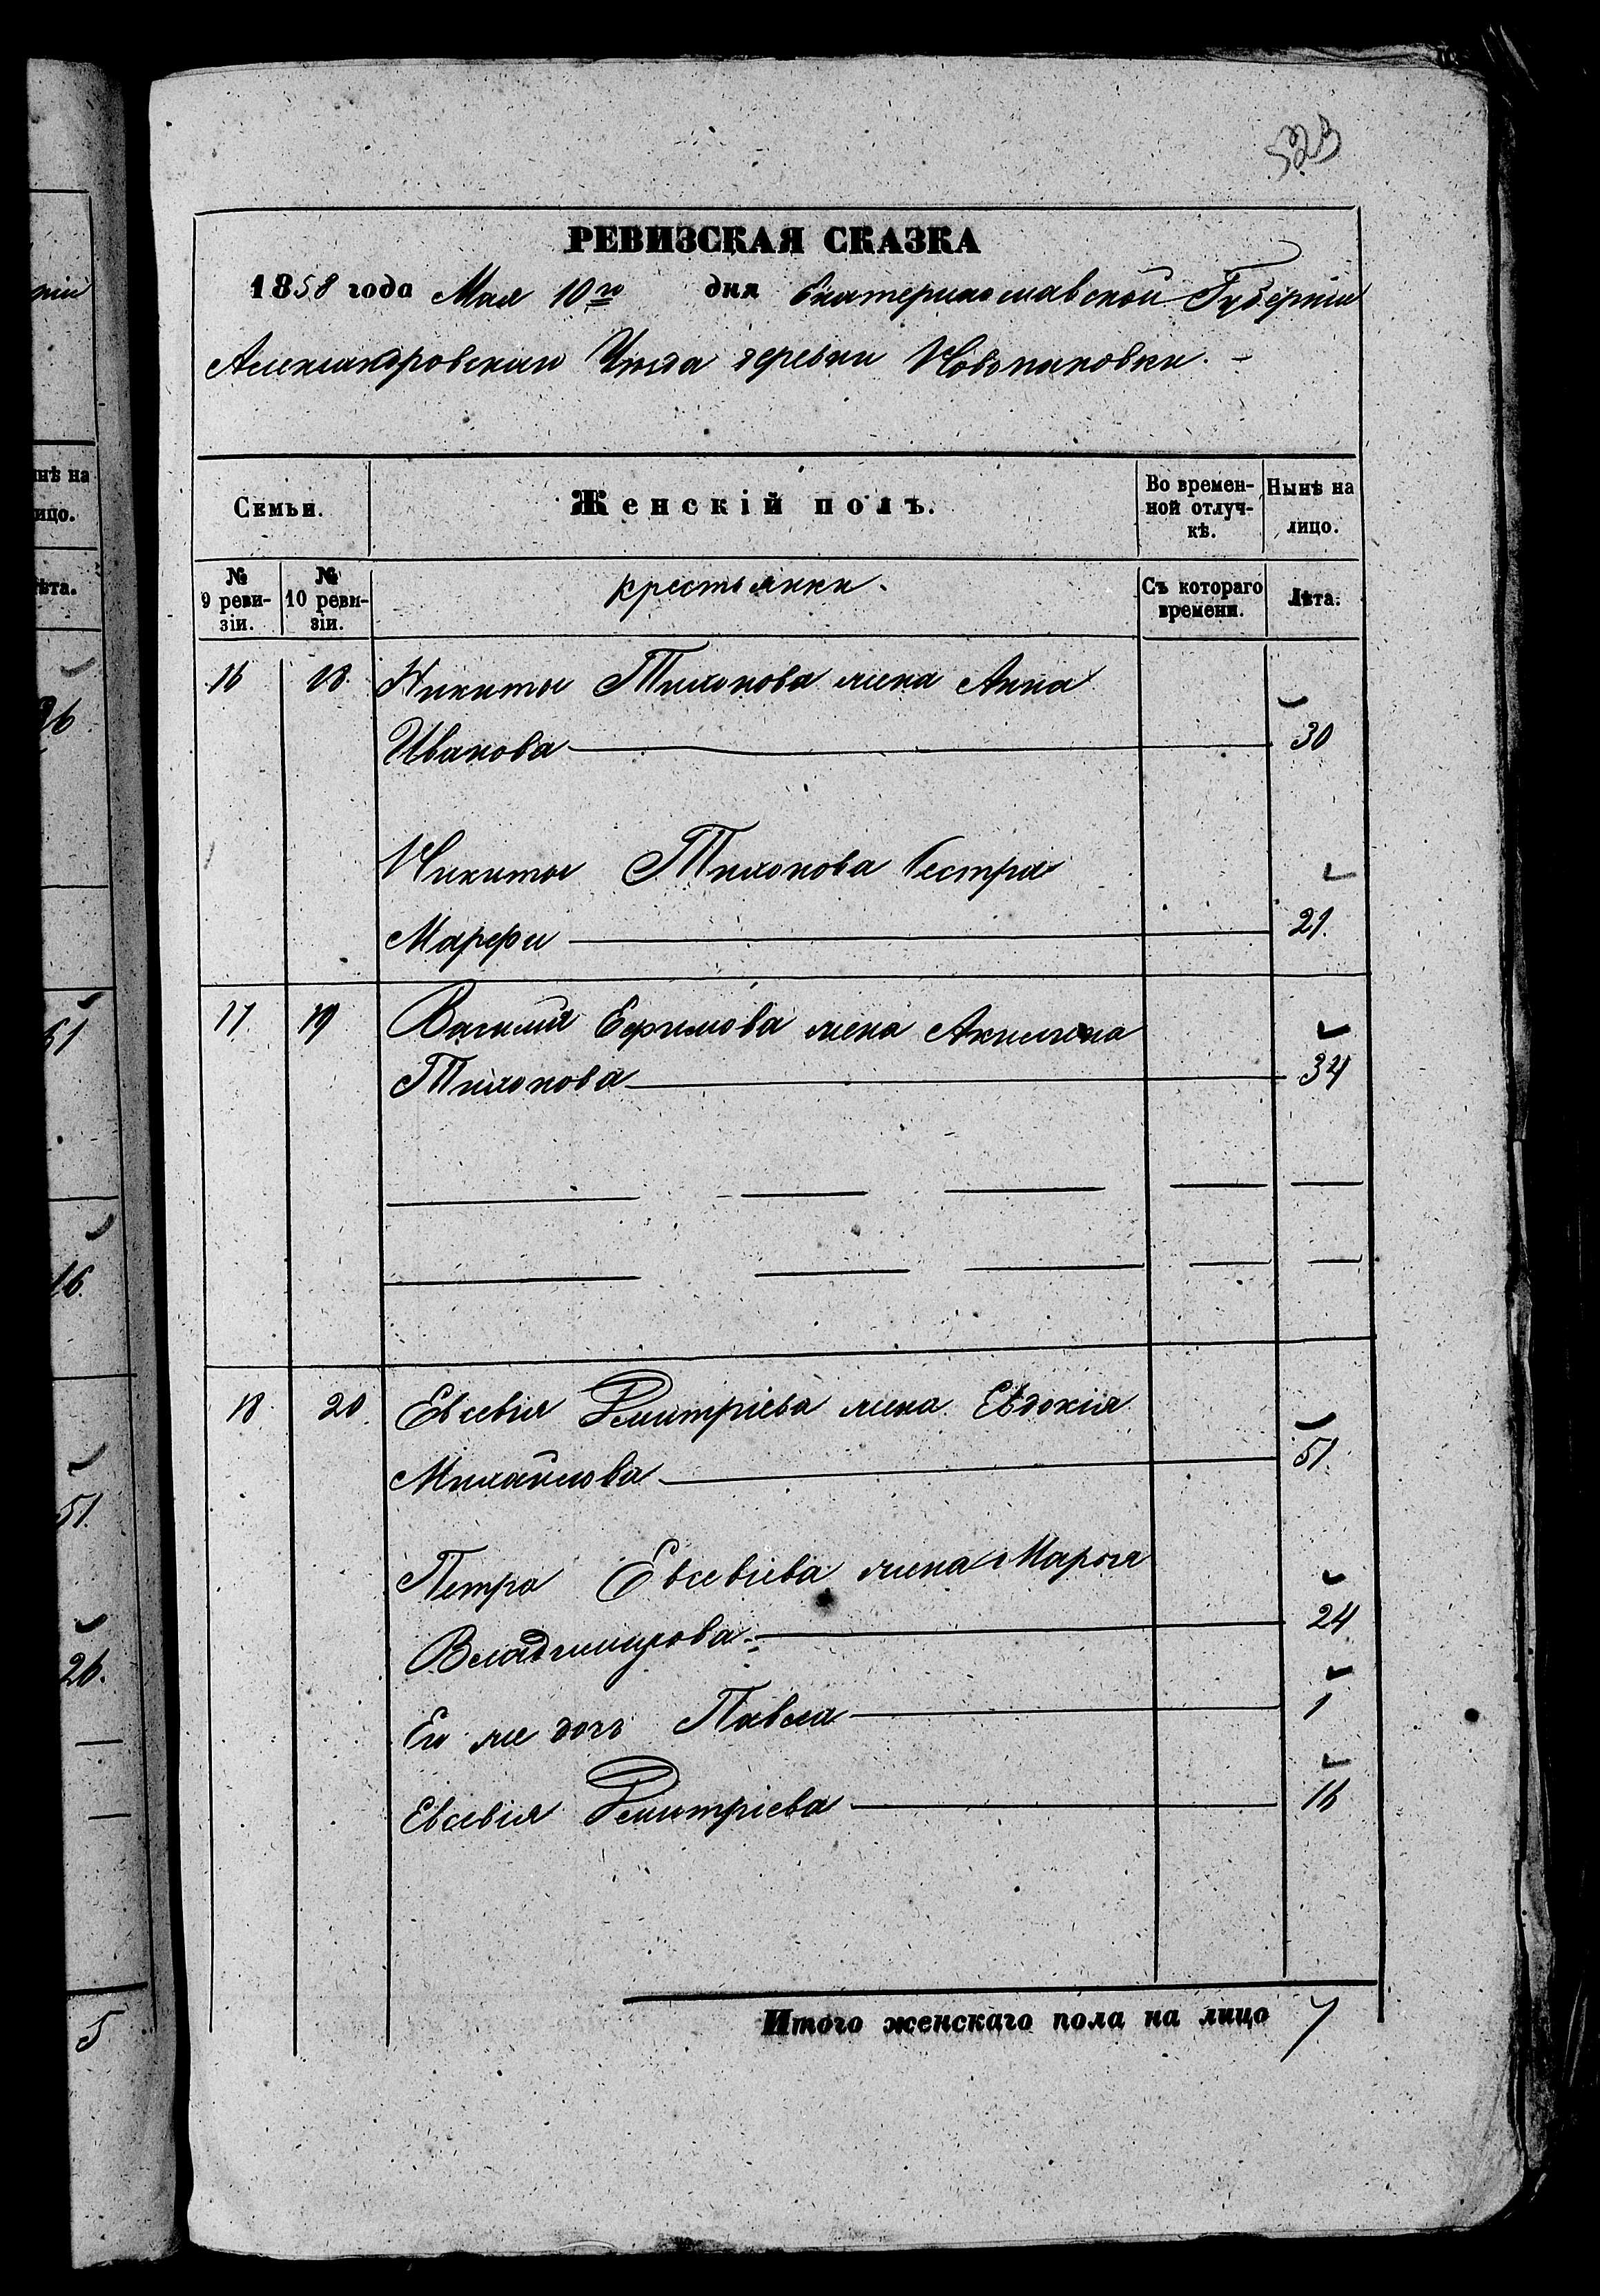 523
РЕВИЗСКАЯ СКАЗКА
1858 года Мая 10го дня Екатеринославской Губерніи
Александровскаго Уѣзда деревни
нѣ на
ицо.
ѣта.
26
51
16.
51.
26.
5
Семьи.
Женскій полъ.
Во времен-
ной отлуч-
кѣ.
Нынѣ на
лицо.
№
9 реви-
зіи.
№
10 реви-
зіи.
крестьянки.
Съ котораго
времени.
Лѣта.
16 18. Никиты Тихонова жена Анна
Иванова 30
Никиты Тихонова Сестра
Марфи 21.
17. 19 Василия Ефимова жена Акилина
Тихонова 34
18. 20. Евсевія Дмитріева жена Евдокія
Михайлова 51.
Петра Евсевіева жена Марья
Владимирова 24
Ея же дочь Павла 1
Евсевія Дмитріева 16
Итого женскаго пола на лицо 7